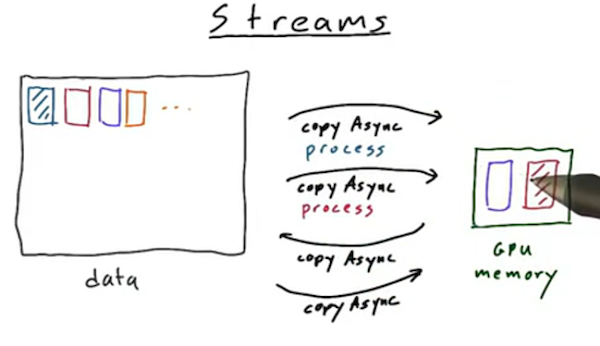 Streams
copy Async
process
copy Async
process
copy Async
copy Async
data
GPU
memory